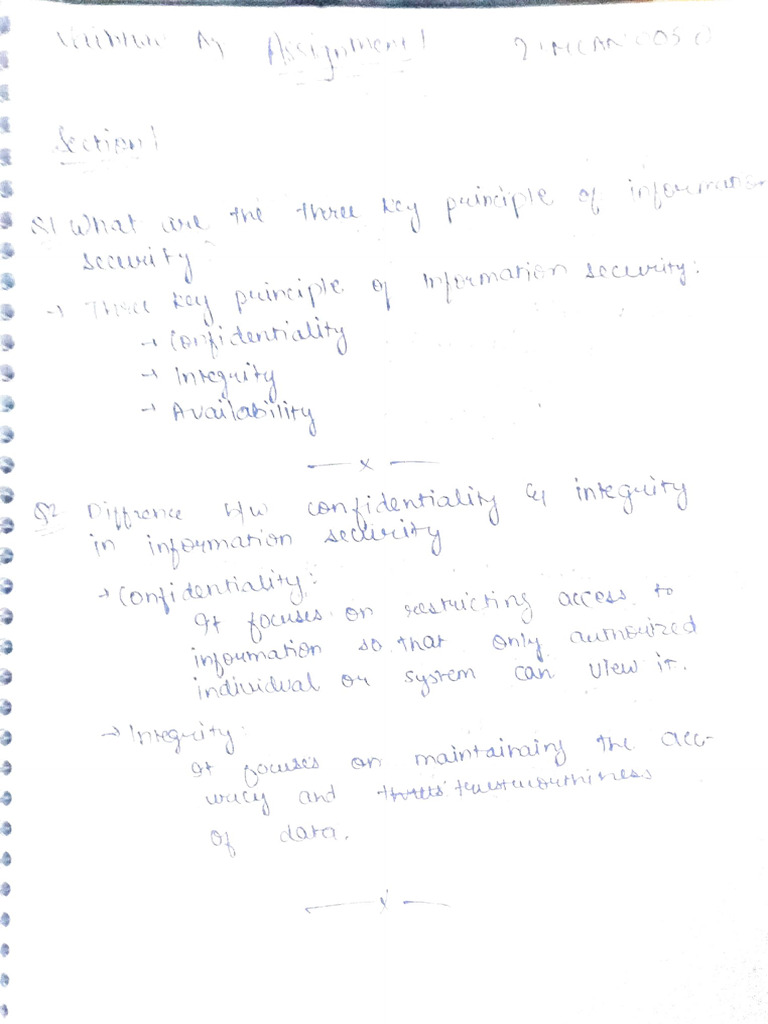 Assignment 1
Section 1
Q1 What are the three key principle of information
security
→ Three key principle of information security:
→ Confidentiality
→ Integrity
→ Availability
— x —
Q2 Diffrence b/w confidentiality & integrity
in information security
→ Confidentiality:
It focuses on restricting access to
information so that only authorized
individual or system can view it.
→ Integrity:
It focuses on maintaining the acc-
uracy and trustworthiness
of data.
— x —